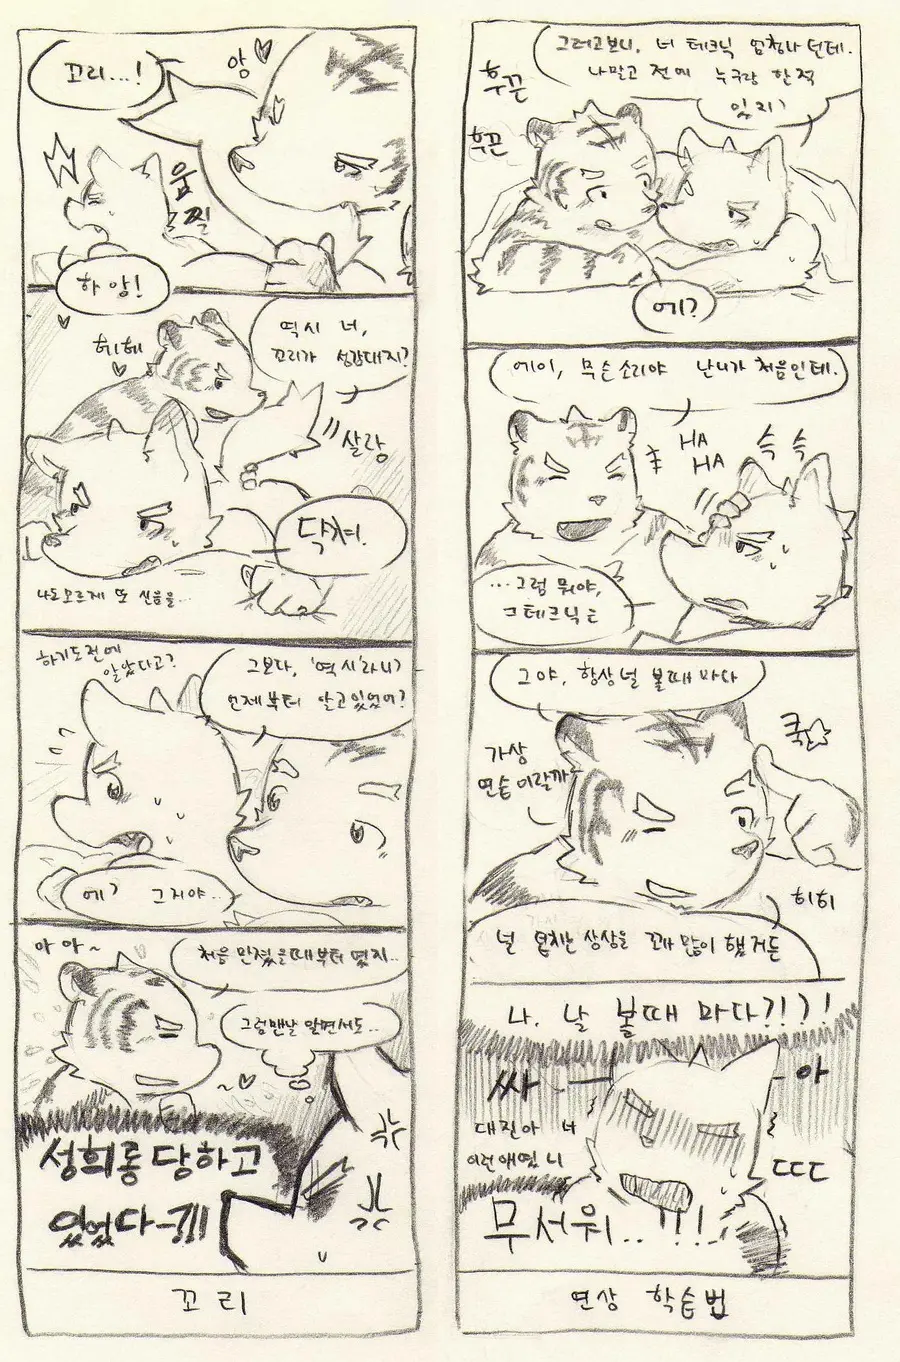 꼬리...!
앙♥
움찔
하앙!
역시 너,
꼬리가 성감대지?
히헤
♥
살랑
닥쳐.
나도모르게 또 신음을...
하기도전에
알았다고?
그보다, '역시'라니?
언제부터 알고있었어?
에? 그치야..
아아~
처음 만졌을때부터 였지..
그럼맨날 알면서도..
~♥
성희롱당하고
있었다-?!!!
꼬리
그러고보니, 너 테크닉 엄청나던데.
나말고 전에 누구랑 한적
있지?
후끈
후끈
에?
에이, 무슨소리야 난니가 처음인데.
HA
HA
슥슥
...그럼 뭐야,
그테크닉은
그야, 항상널 볼때마다
가상
연습이랄까
쿡☆
히히
널 덮치는 상상을 꽤 많이 했거든
나. 날 볼때 마다?!?!
싸 아
대진아 너
이런애였니
ㄷㄷㄷ
무서워..!!!
연상 학습법